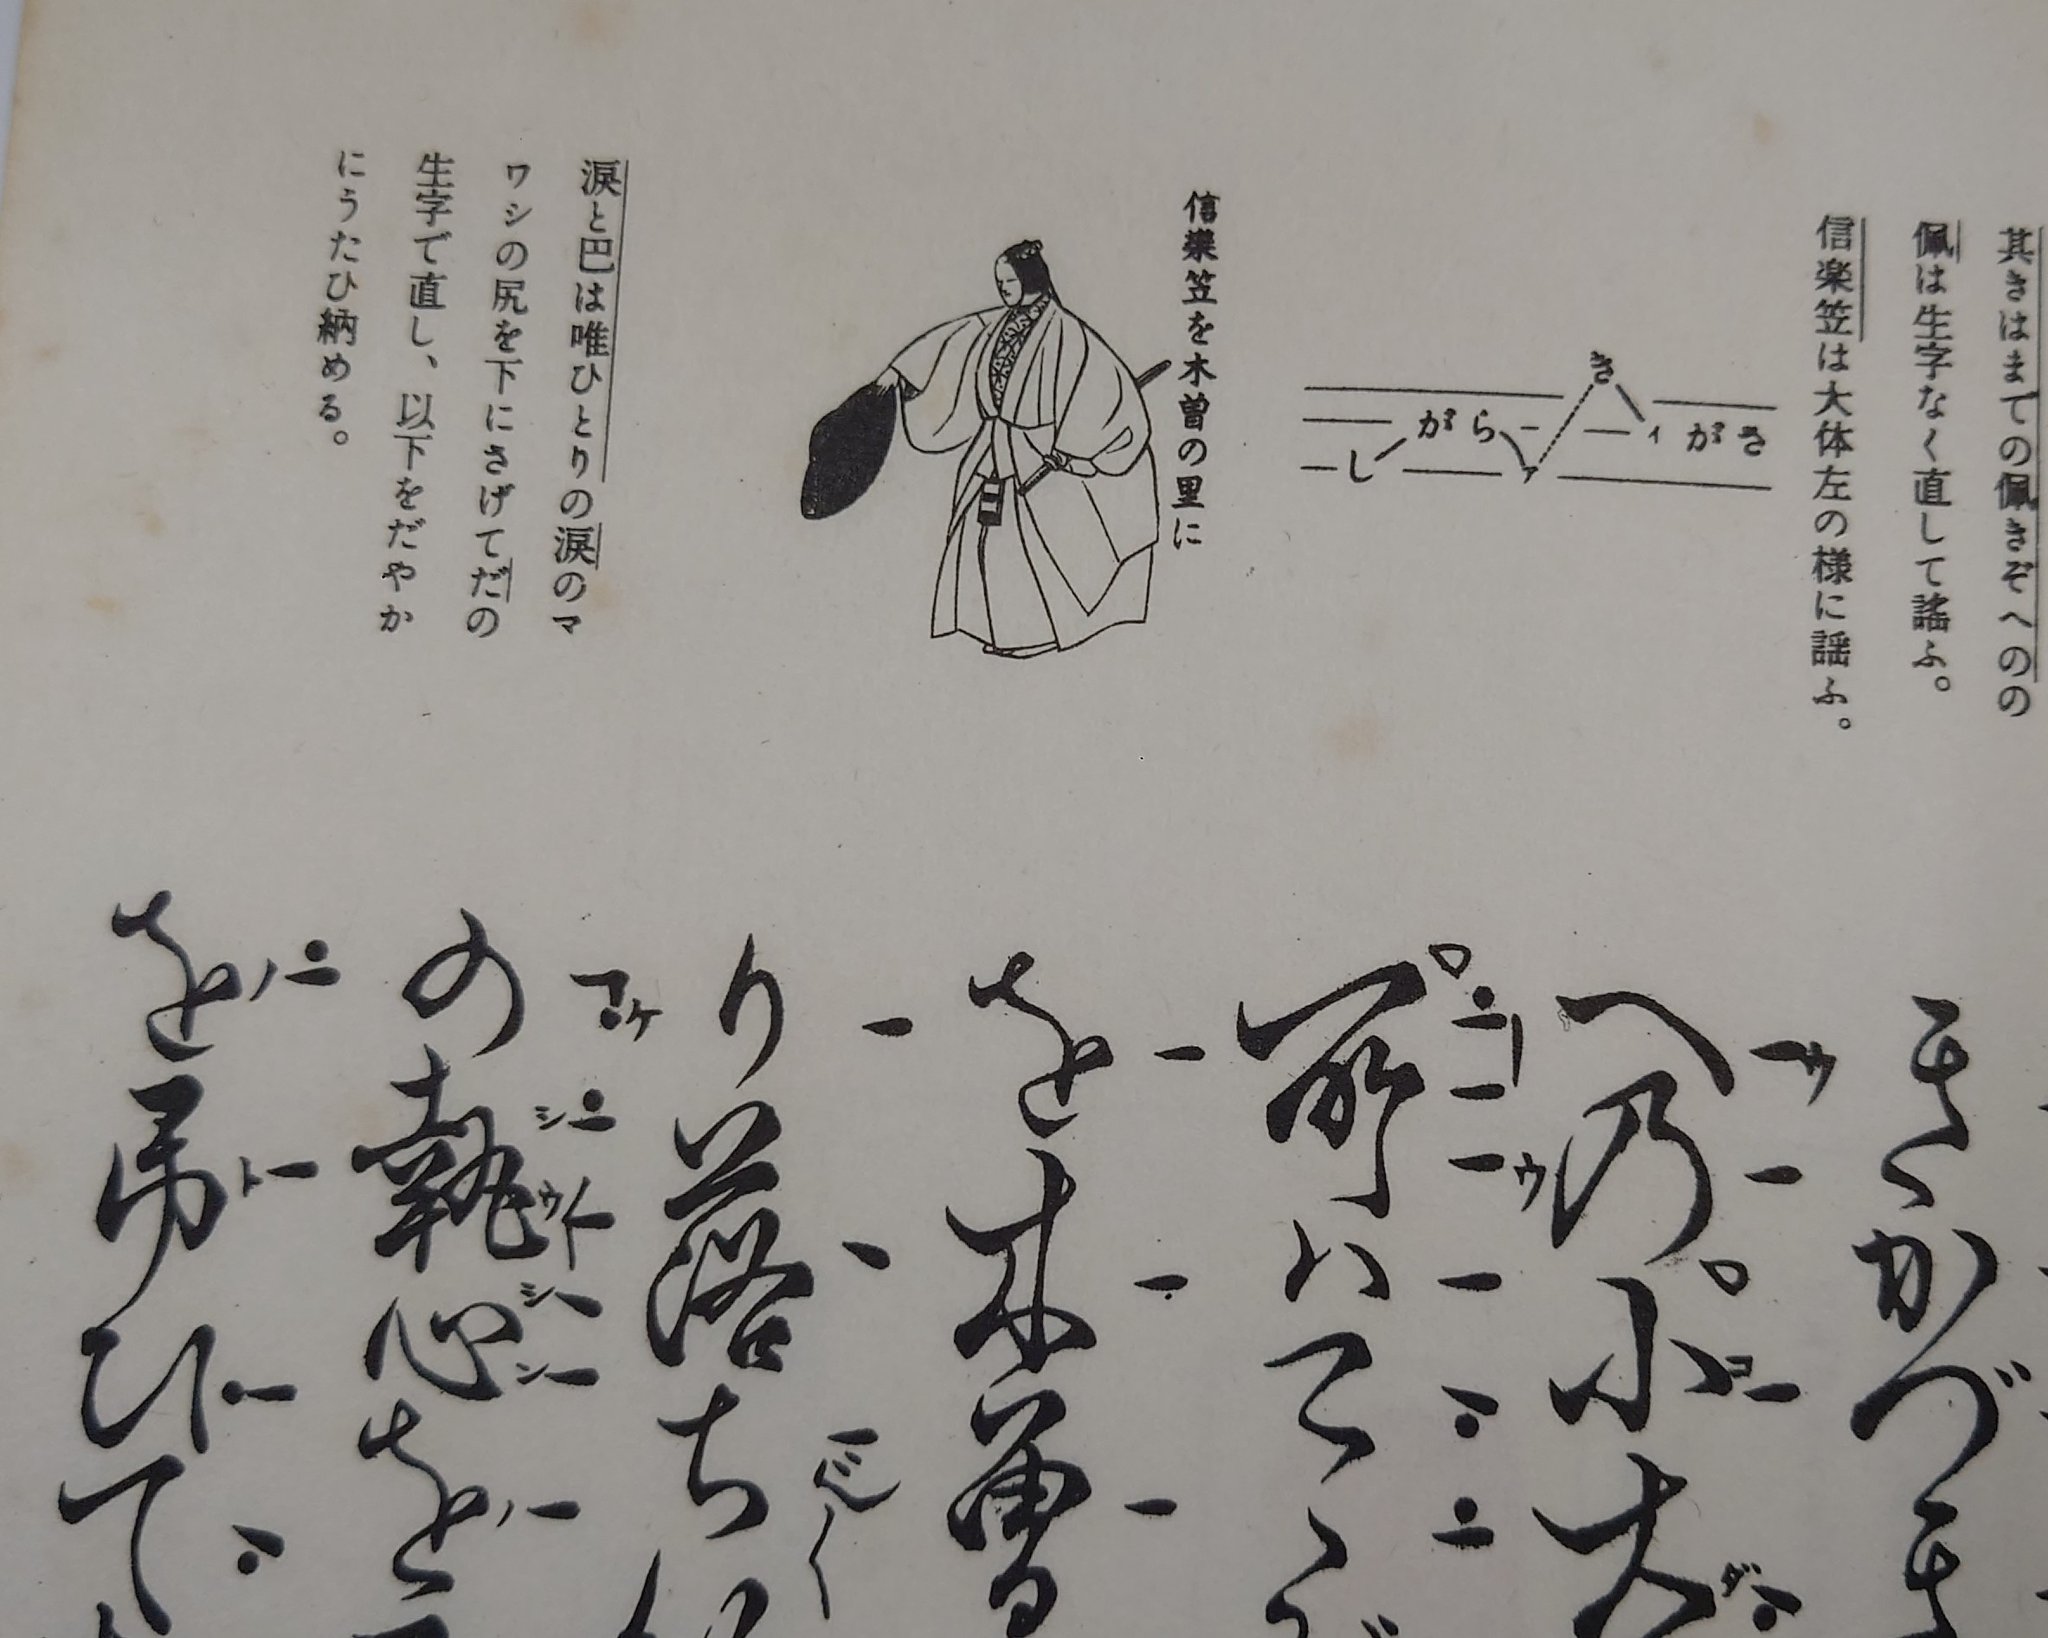 其きはまでの佩きぞへのの
佩は生字なく直して謡ふ。
信楽笠は大体左の様に謡ふ。
しがらァきィがさ
信樂笠を木曽の里に
涙と巴は唯ひとりの涙のマ
ワシの尻を下にさげてだの
生字で直し、以下をだやか
にうたひ納める。
きかづき
へ乃小太
所ハこゝが
を木曽
り落ち
の執心を
を弔ひて